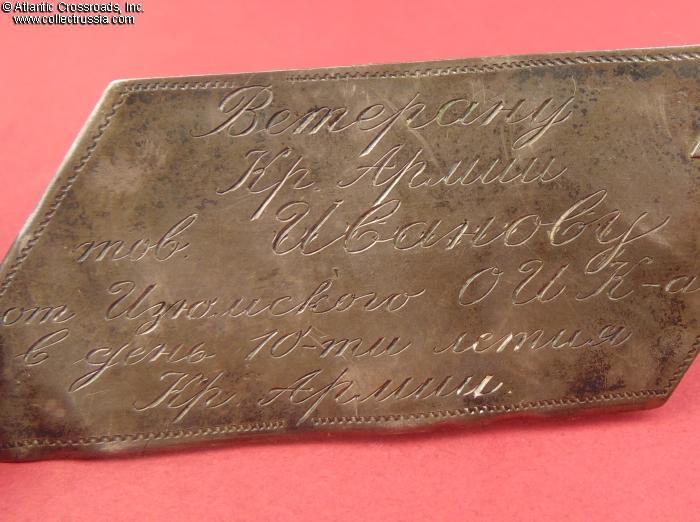 © Atlantic Crossroads, Inc.
www.collectrussia.com
Ветерану
Кр. Армии
тов. Иванову
от Изюмского ОИК-а
в день 10-ти летия
Кр Армии.